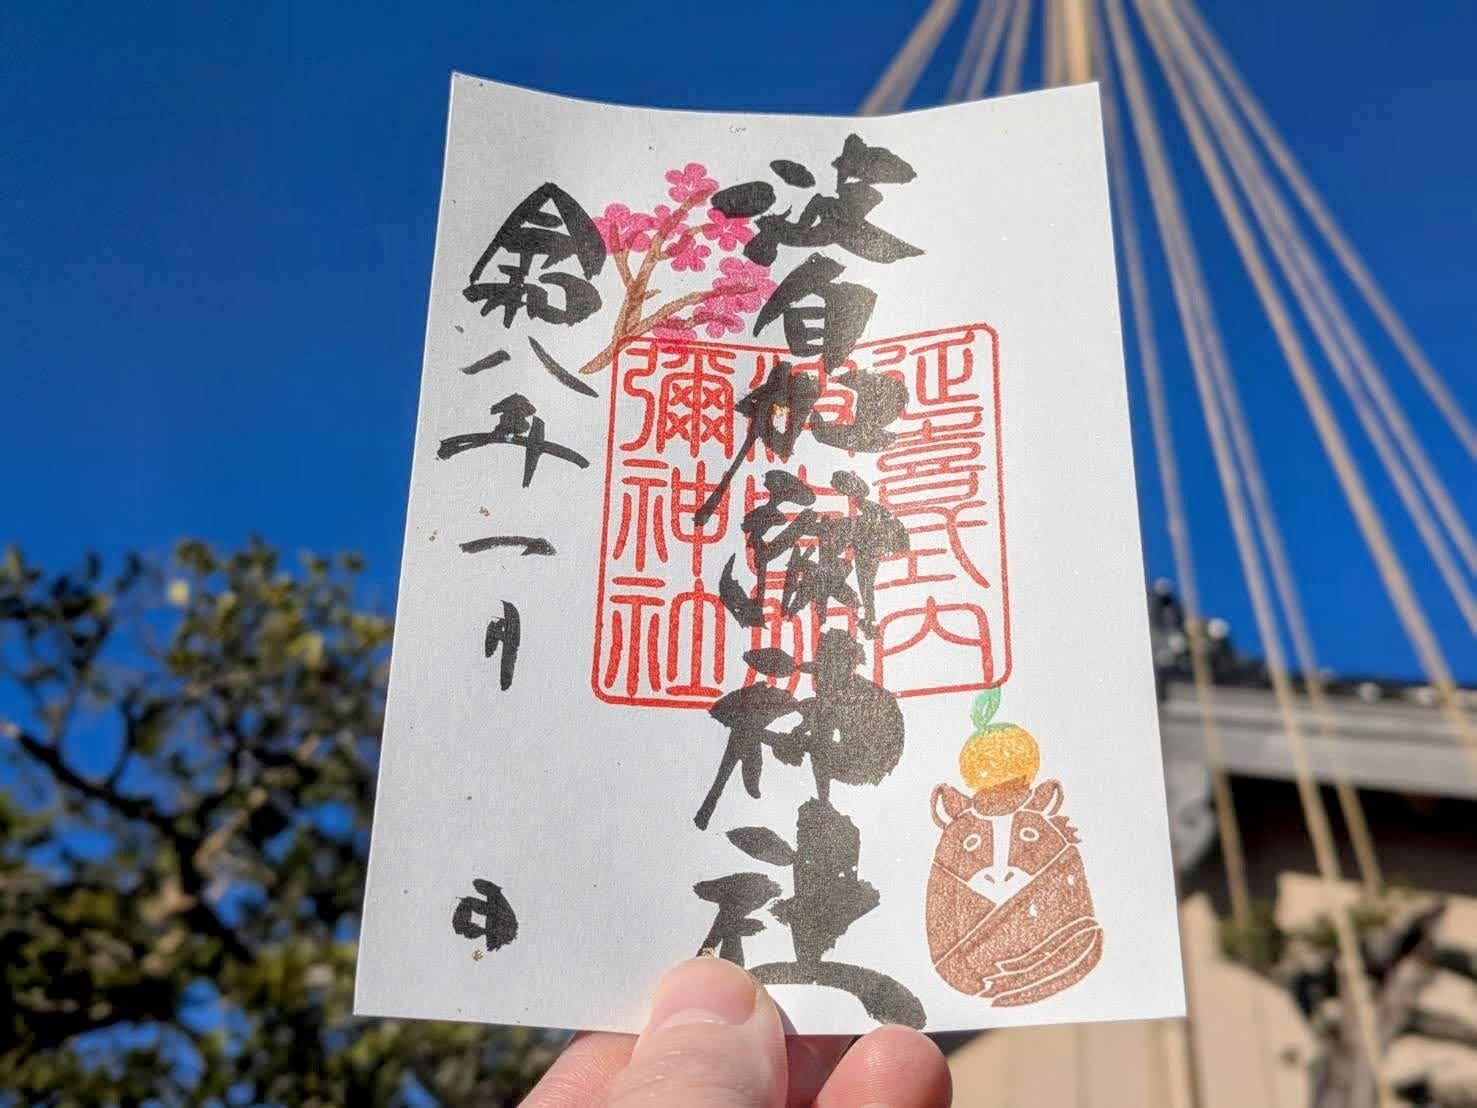 波自加彌神社
延喜式内
波自加
彌神社
令和八年一月 日